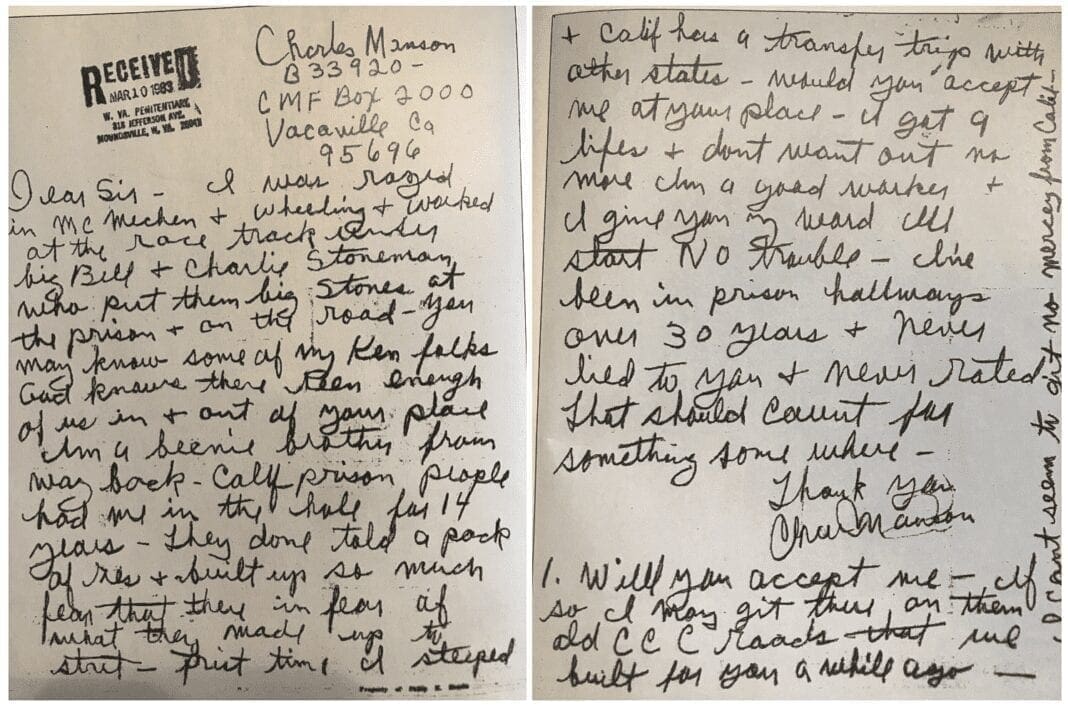 RECEIVED
MAR 10 1983
W. VA. PENITENTIARY
818 JEFFERSON AVE.
MOUNDSVILLE, W. VA. 26041
Charles Manson
B 33920 -
CMF Box 2000
Vacaville Ca
95696
Dear Sir - I was razed
in McMechen + Wheeling + worked
at the race track under
big Bill + Charlie Stoneman
who put them big stones at
the prison + on the road - you
may know some of my Ken folks
God knows there been enough
of us in + out of your place
Im a beenie brother from
way back - Calf prison people
had me in the hole for 14
years - They done told a pack
of lies + built up so much
fear that they in fear of
what they made up to
strit - frist time I steeped
+ Calif has a transfer trips with
other states - would you accept
me at your place - I got 9
lifes + dont want out no
more Im a good worker +
I give you my word Ill
start NO trouble - Ive
been in prison hallways
over 30 years + never
lied to you + never rated
That should count for
something some where -
Thank you
Manson
1. Will you accept me - If
so I may git there on them
old CCC roads that we
built for you a while ago —
I cant seem to git no mercey from Calif -